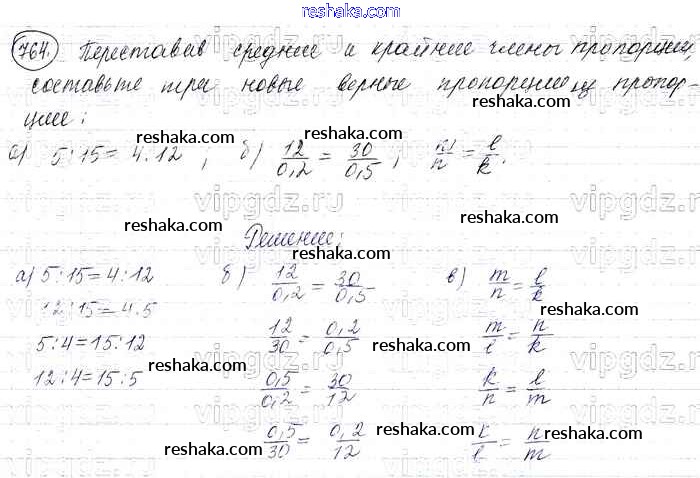 reshaka.com
764. Переставив средние и крайние члены пропорции,
составьте три новые верные пропорции из пропор-
ции:
reshaka.com
а) 5:15 = 4:12 ; б) 12/0,2 = 30/0,5 ; m/n = l/k.
reshaka.com reshaka.com
vipgdz.ru vipgdz.ru vipgdz.ru
reshaka.com Решение: reshaka.com
а) 5:15=4:12 б) 12/0,2 = 30/0,5 в) m/n = l/k
reshaka.com
12:15=4:5 reshaka.com
5:4=15:12 12/30 = 0,2/0,5 m/l = n/k
reshaka.com
vipgdz.ru vipgdz.ru vipgdz.ru
reshaka.com
12:4=15:5 0,5/0,2 = 30/12 k/n = l/m
reshaka.com
0,5/30 = 0,2/12 k/l = n/m
reshaka.com reshaka.com
vipgdz.ru vipgdz.ru vipgdz.ru